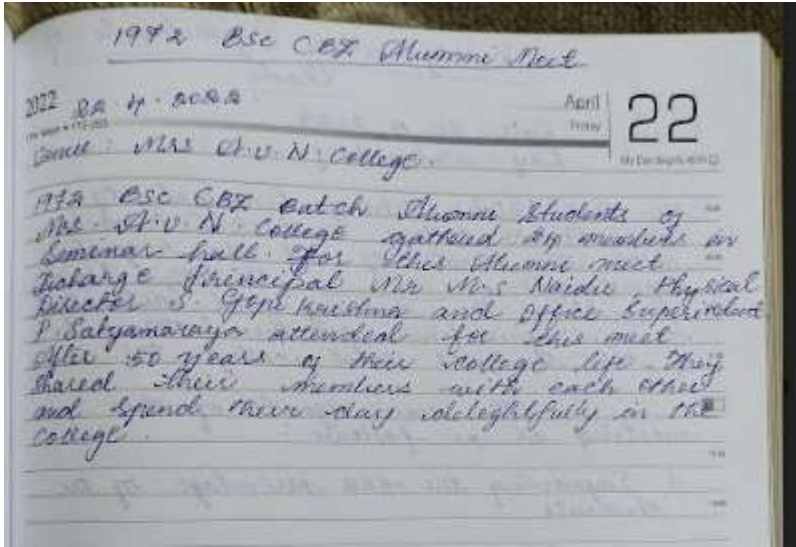 1972 BSC CBZ Alumni Meet
2022 22.4.2022
April
Friday
22
Venue: Mrs A.V.N. College.
1972 BSC CBZ Batch Alumni Students of
Mrs. A.V.N. College gathered 24 members in
Seminar hall. For this Alumni meet
Incharge Principal Mr M.S Naidu, Physical
Director S. Gopi Krishna and Office Superintendent
P. Satyanarayana attended for this meet.
After 50 years of their college life they
shared their members with each other
and spend their day delightfully in the
college.